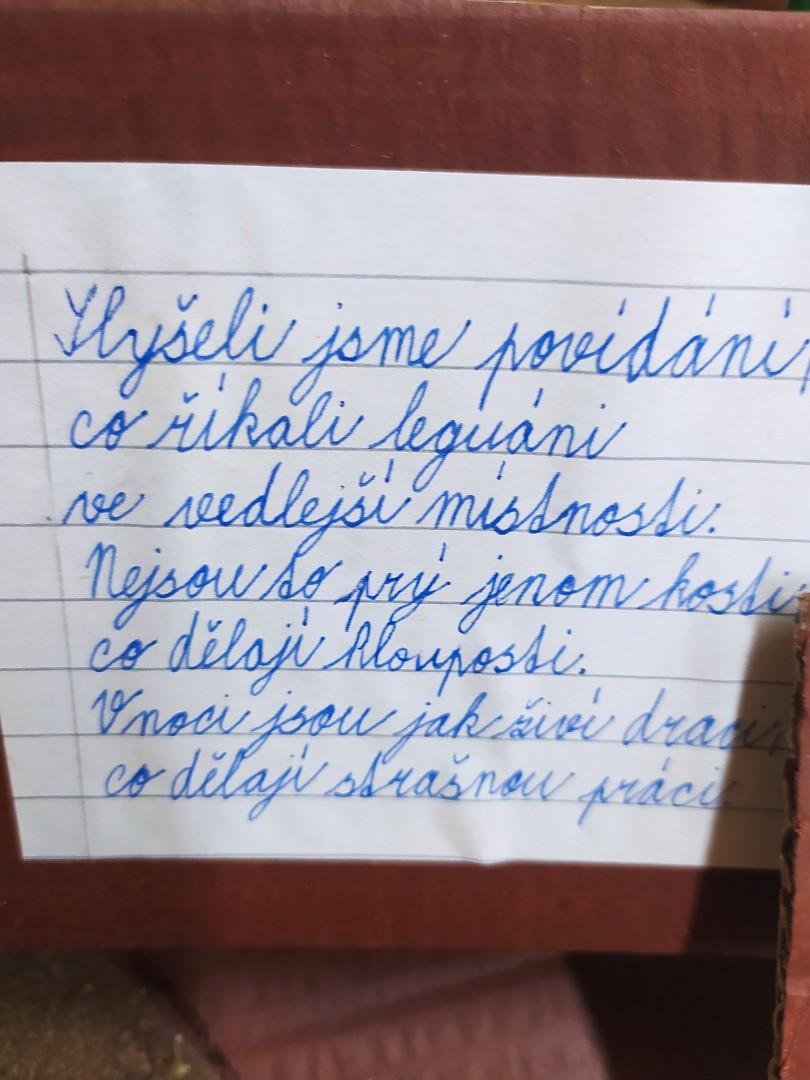 Slyšeli jsme povídání,
co říkali leguáni
ve vedlejší místnosti.
Nejsou to prý jenom kosti,
co dělají hlouposti.
V noci jsou jak živí draci,
co dělají strašnou práci.